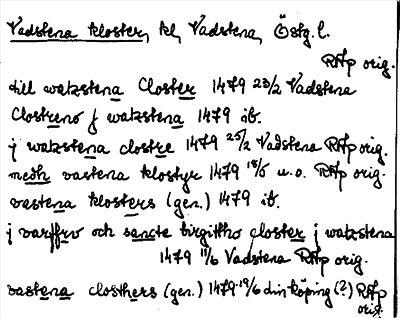 Vadstena kloster, kl, Vadstena, Östg.l.
RAp orig.
till watzstena Closter 1479 23/2 Vadstena
Clostreno j watzstena 1479 ib.
j watzstena clostre 1479 25/2 Vadstena RAp orig.
medh vastena klostyr 1479 18/5 u.o. RAp orig.
vastena klosters (gen.) 1479 ib.
j varffrv och sancte birgitthe closter j watzstena
1479 11/6 Vadstena RAp orig.
vastena closthers (gen.) 1479 19/6 dinköping (?) RAp
orig.